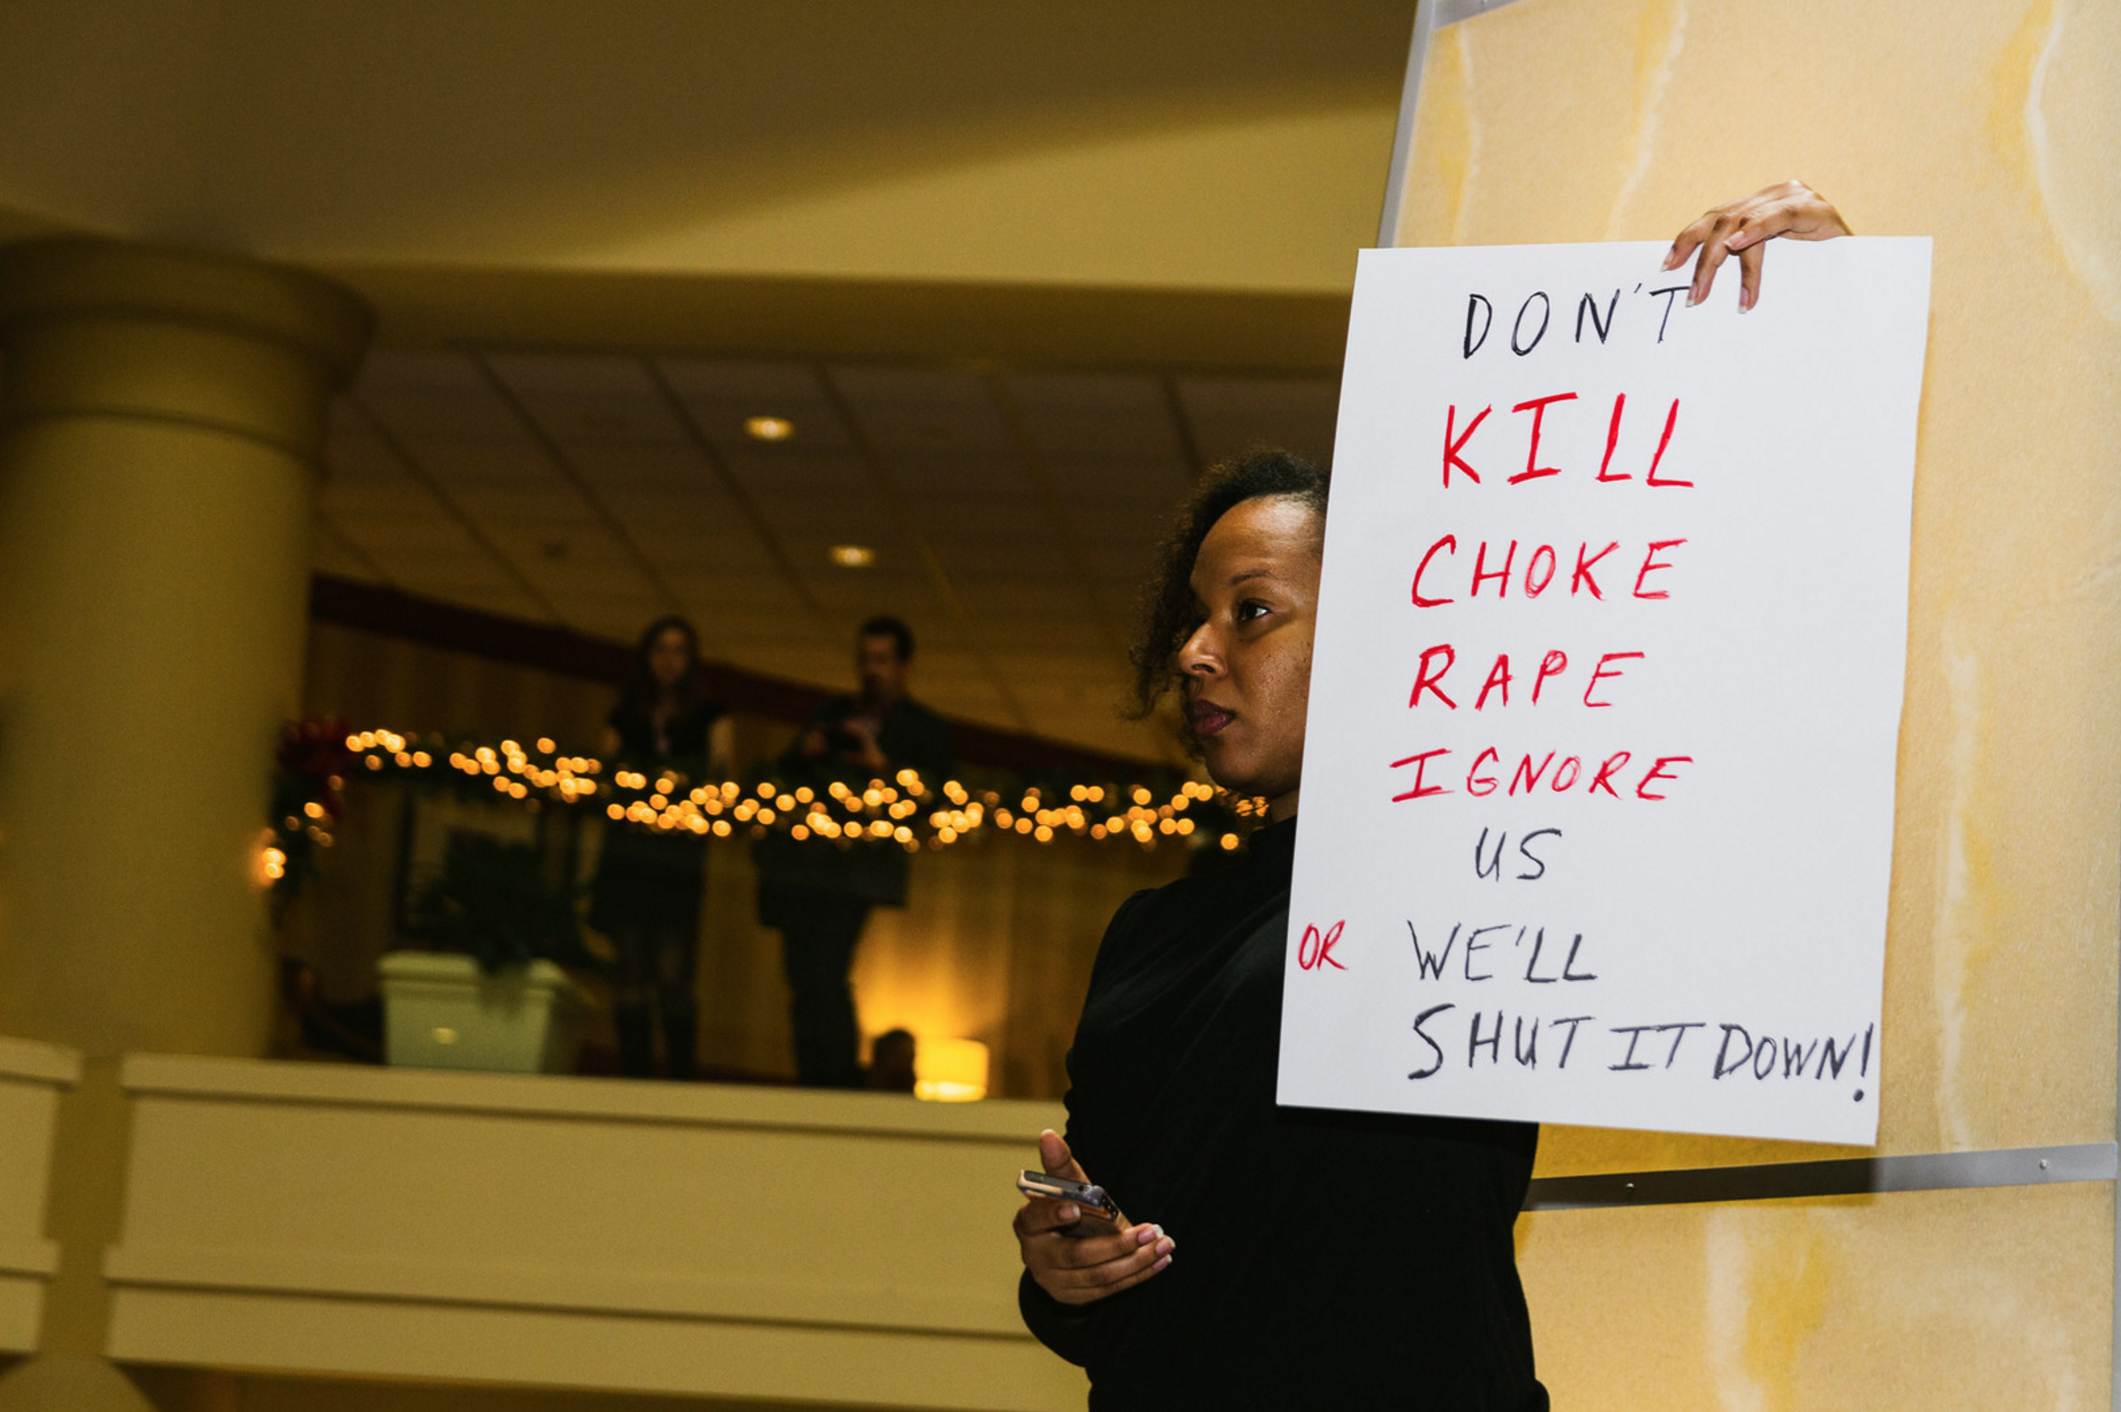 DON'T
KILL
CHOKE
RAPE
IGNORE
US
OR WE'LL
SHUT IT DOWN!